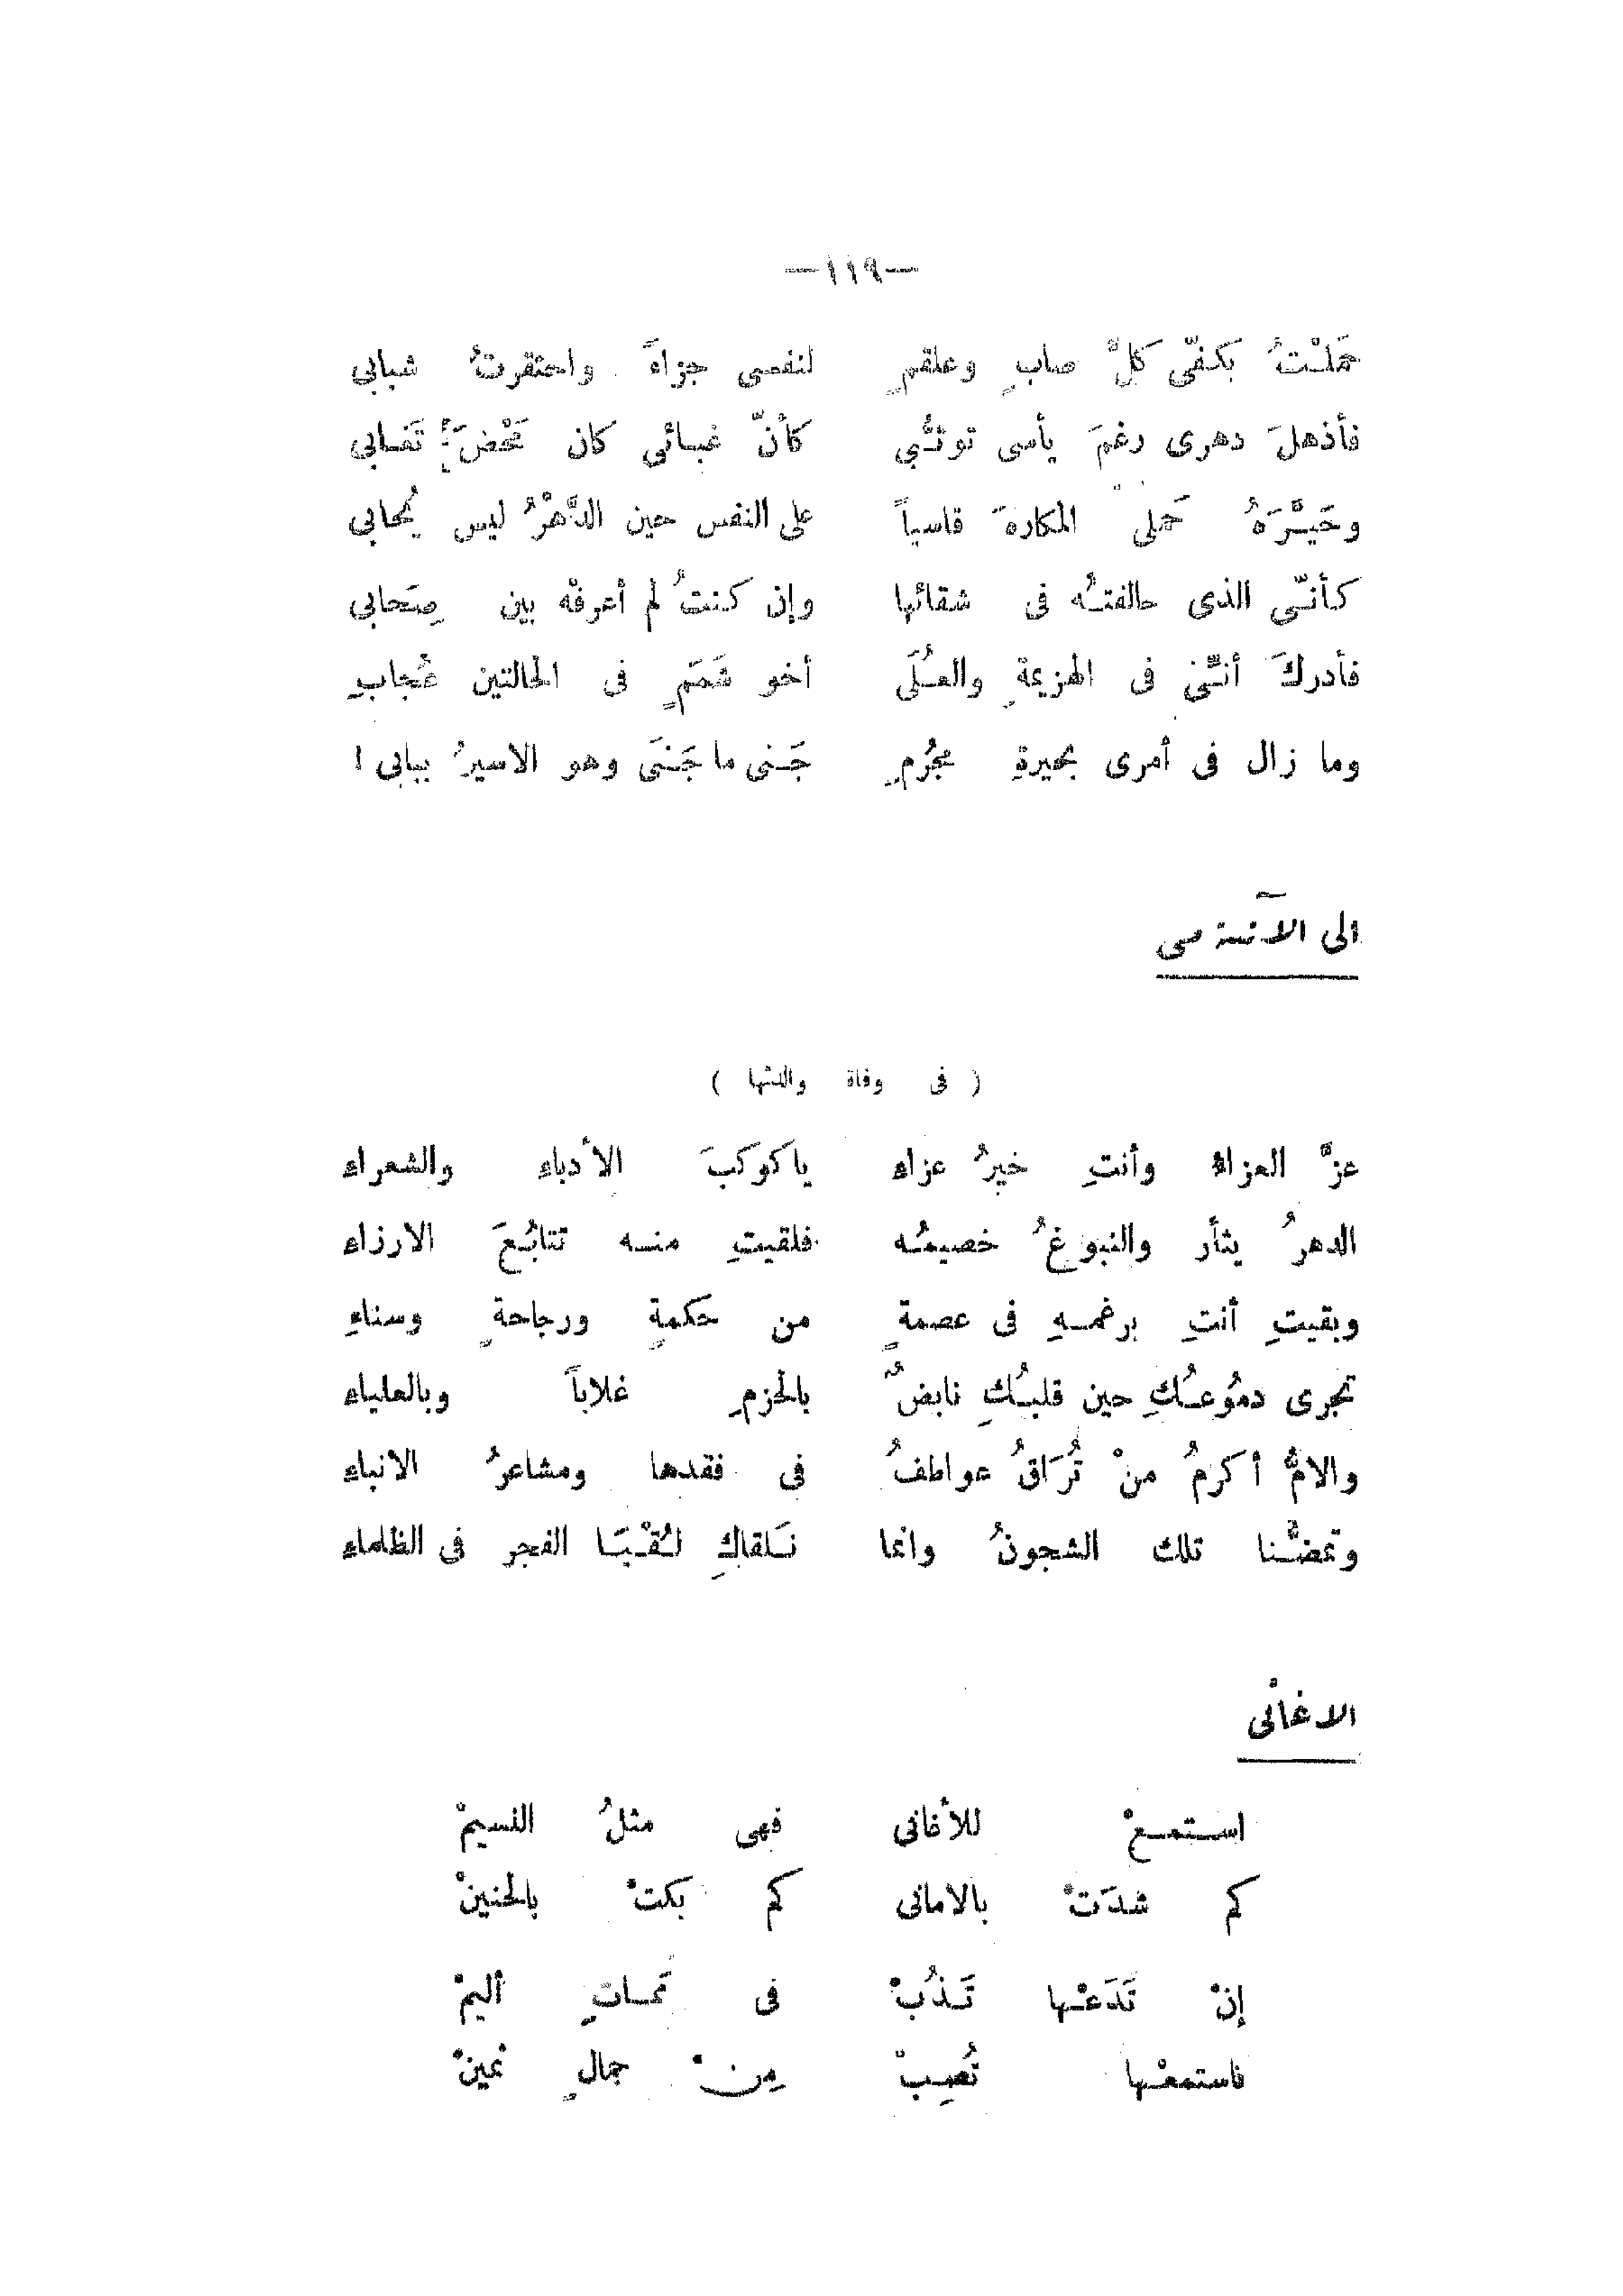 —١١٩—
حَمَلْتُ بكفّى كلَّ صابٍ وعلقمٍ لنفسى جزاءً واحتقرتُ شبابى
فأذهلَ دهرى رغمَ يأسى توثُّبي كأنّ غبائى كان مَحْضَ تَغابى
وحَيَّرَهُ حَملى المكارهَ قاسياً على النفس حين الدَّهْرُ ليس يُحابى
كأنّى الذى حالفتُه فى شقائها وإن كنتُ لم أعرفْه بين صِحَابى
فأدركَ أنَّنى فى الهزيمةِ والعُلَى أخو شَمَمٍ فى الحالتين عُجابِ
وما زال فى أمرى بحيرةِ مجرُمٍ جَنى ما جَنَى وهو الاسيرُ ببابى !
الى الآنسة مى
( فى وفاة والدتها )
عزَّ العزاءُ وأنتِ خيرُ عزاءِ ياكوكبَ الأدباءِ والشعراءِ
الدهرُ يثأر والنبوغُ خصيمُه فلقيتِ منه تتابُعَ الارزاءِ
وبقيتِ أنتِ برغمهِ فى عصمةٍ من حكمةٍ ورجاحةٍ وسناءِ
تجرى دموُعُكِ حين قلبُكِ نابضٌ بالحزمِ غلاباً وبالعلياءِ
والامُّ أكرمُ منْ تُرَاقُ عواطفُ فى فقدها ومشاعرُ الانباءِ
وتمضُّنا تلك الشجونُ وانما نَلقاكِ لُقْيَا الفجر فى الظلماءِ
الاغانى
استمعْ للأغانى فهى مثلُ النسيمْ
كم شدَتْ بالامانى كم بكتْ بالحنينْ
إنْ تَدَعْها تَذُبْ فى مَماتٍ أليمْ
فاستمعْها تُصِبْ مِنْ جمالٍ ثمينْ